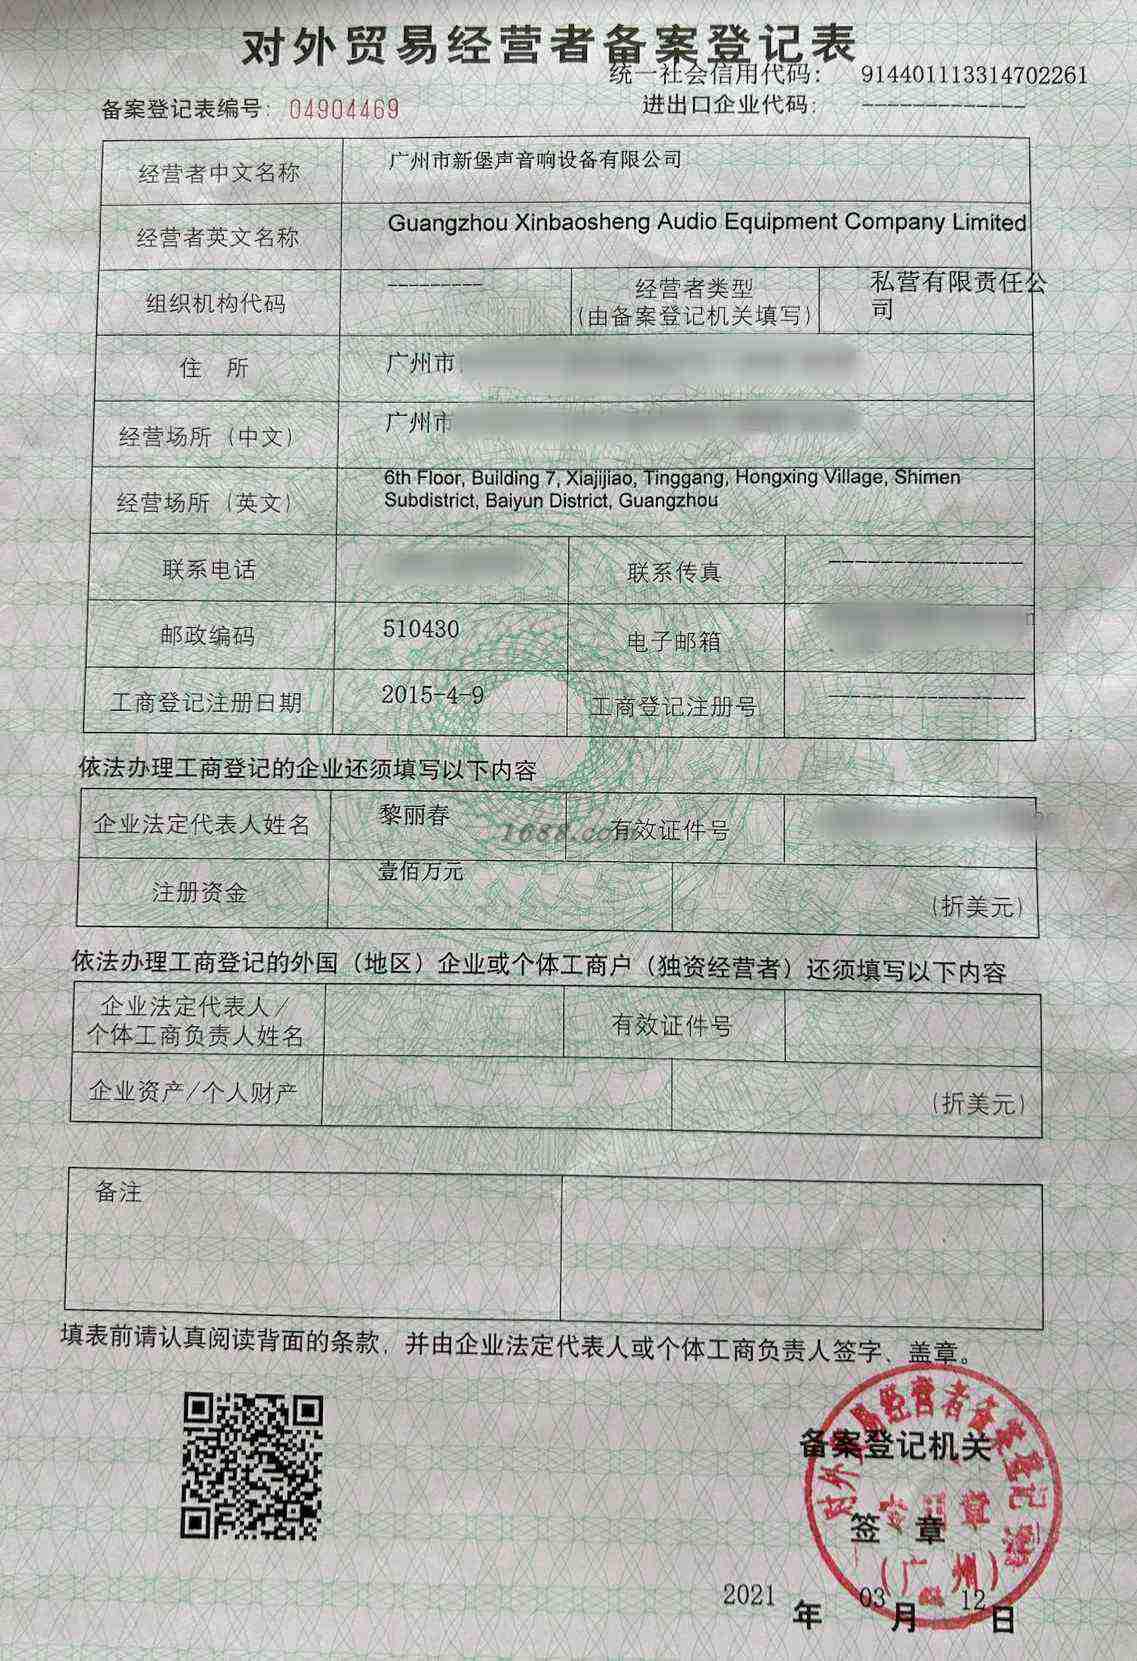 对外贸易经营者备案登记表
统一社会信用代码： 914401113314702261
备案登记表编号： 04904469
进出口企业代码： -------------
经营者中文名称 广州市新堡声音响设备有限公司
经营者英文名称 Guangzhou Xinbaosheng Audio Equipment Company Limited
组织机构代码 ---------
经营者类型
(由备案登记机关填写)
私营有限责任公
司
住 所 广州市
经营场所（中文） 广州市
经营场所（英文）
6th Floor, Building 7, Xiajijiao, Tinggang, Hongxing Village, Shimen
Subdistrict, Baiyun District, Guangzhou
联系电话 联系传真 ---------------
邮政编码 510430 电子邮箱
工商登记注册日期 2015-4-9 工商登记注册号 ---------------
依法办理工商登记的企业还须填写以下内容
企业法定代表人姓名 黎丽春 有效证件号
1688.com
注册资金 壹佰万元 (折美元)
依法办理工商登记的外国（地区）企业或个体工商户（独资经营者）还须填写以下内容
企业法定代表人/
个体工商负责人姓名
有效证件号
企业资产/个人财产 (折美元)
备注
填表前请认真阅读背面的条款，并由企业法定代表人或个体工商负责人签字、盖章。
备案登记机关
签 章
对外贸易经营者备案登记
专用章
（广州）
2021 年 03 月 12 日